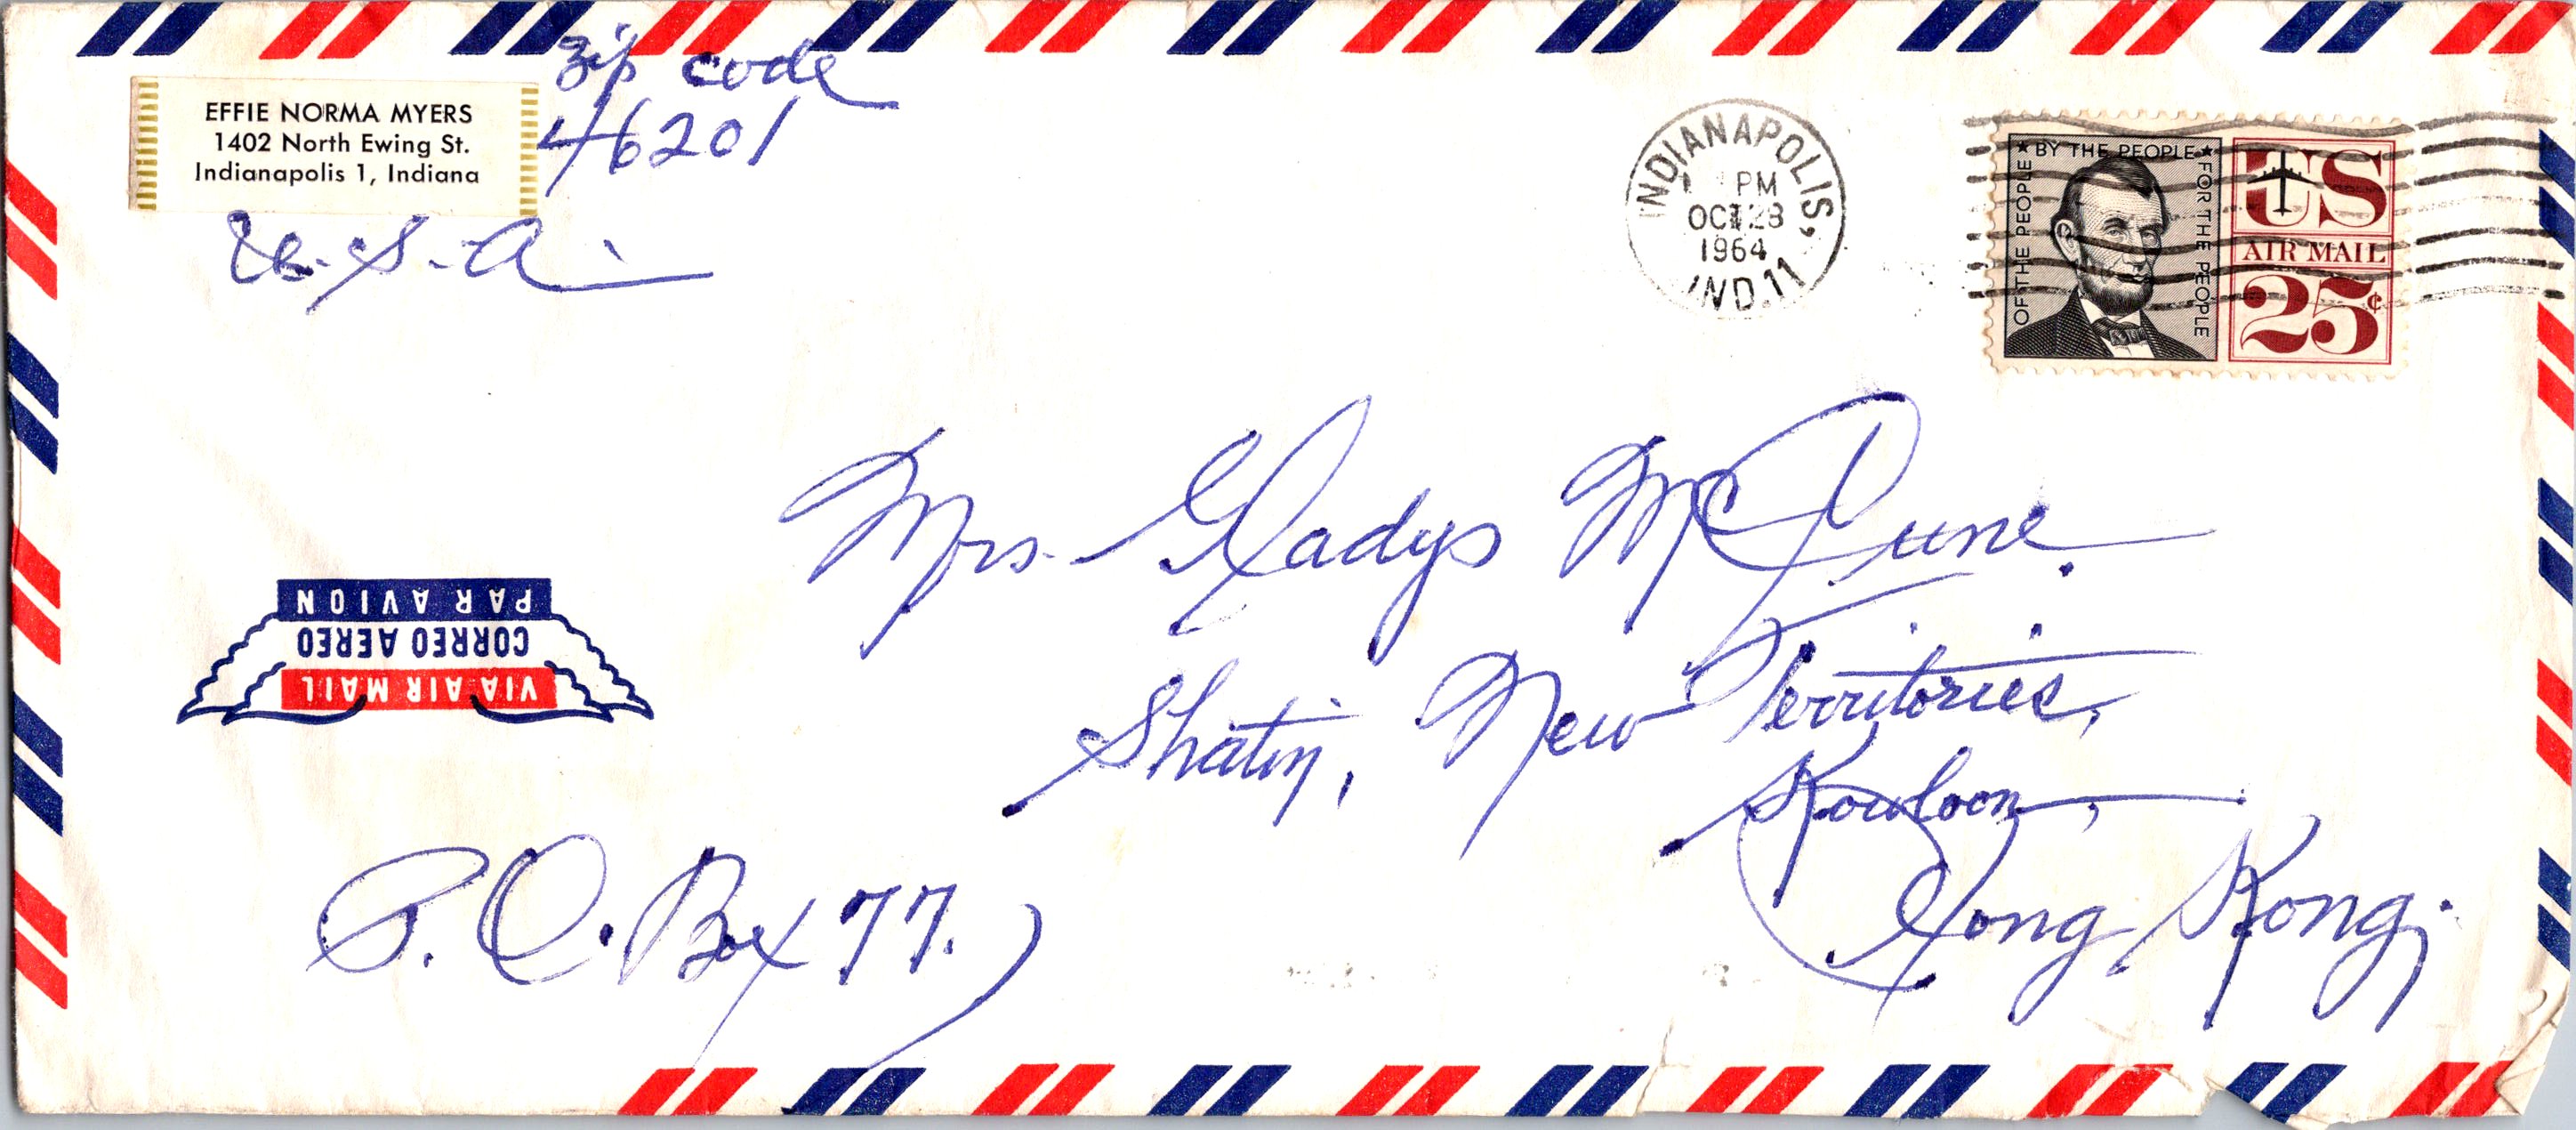 zip code
EFFIE NORMA MYERS
1402 North Ewing St.
Indianapolis 1, Indiana
46201
U.S.A.
INDIANAPOLIS,
PM
OCT 28
1964
IND. 11
OF THE PEOPLE ★ BY THE PEOPLE ★ FOR THE PEOPLE
US
AIR MAIL
25¢
Mrs. Gladys McJune.
Shatin, New Territories,
Kowloon,
Hong Kong.
P.O. Box 77.
VIA AIR MAIL
CORREO AEREO
PAR AVION